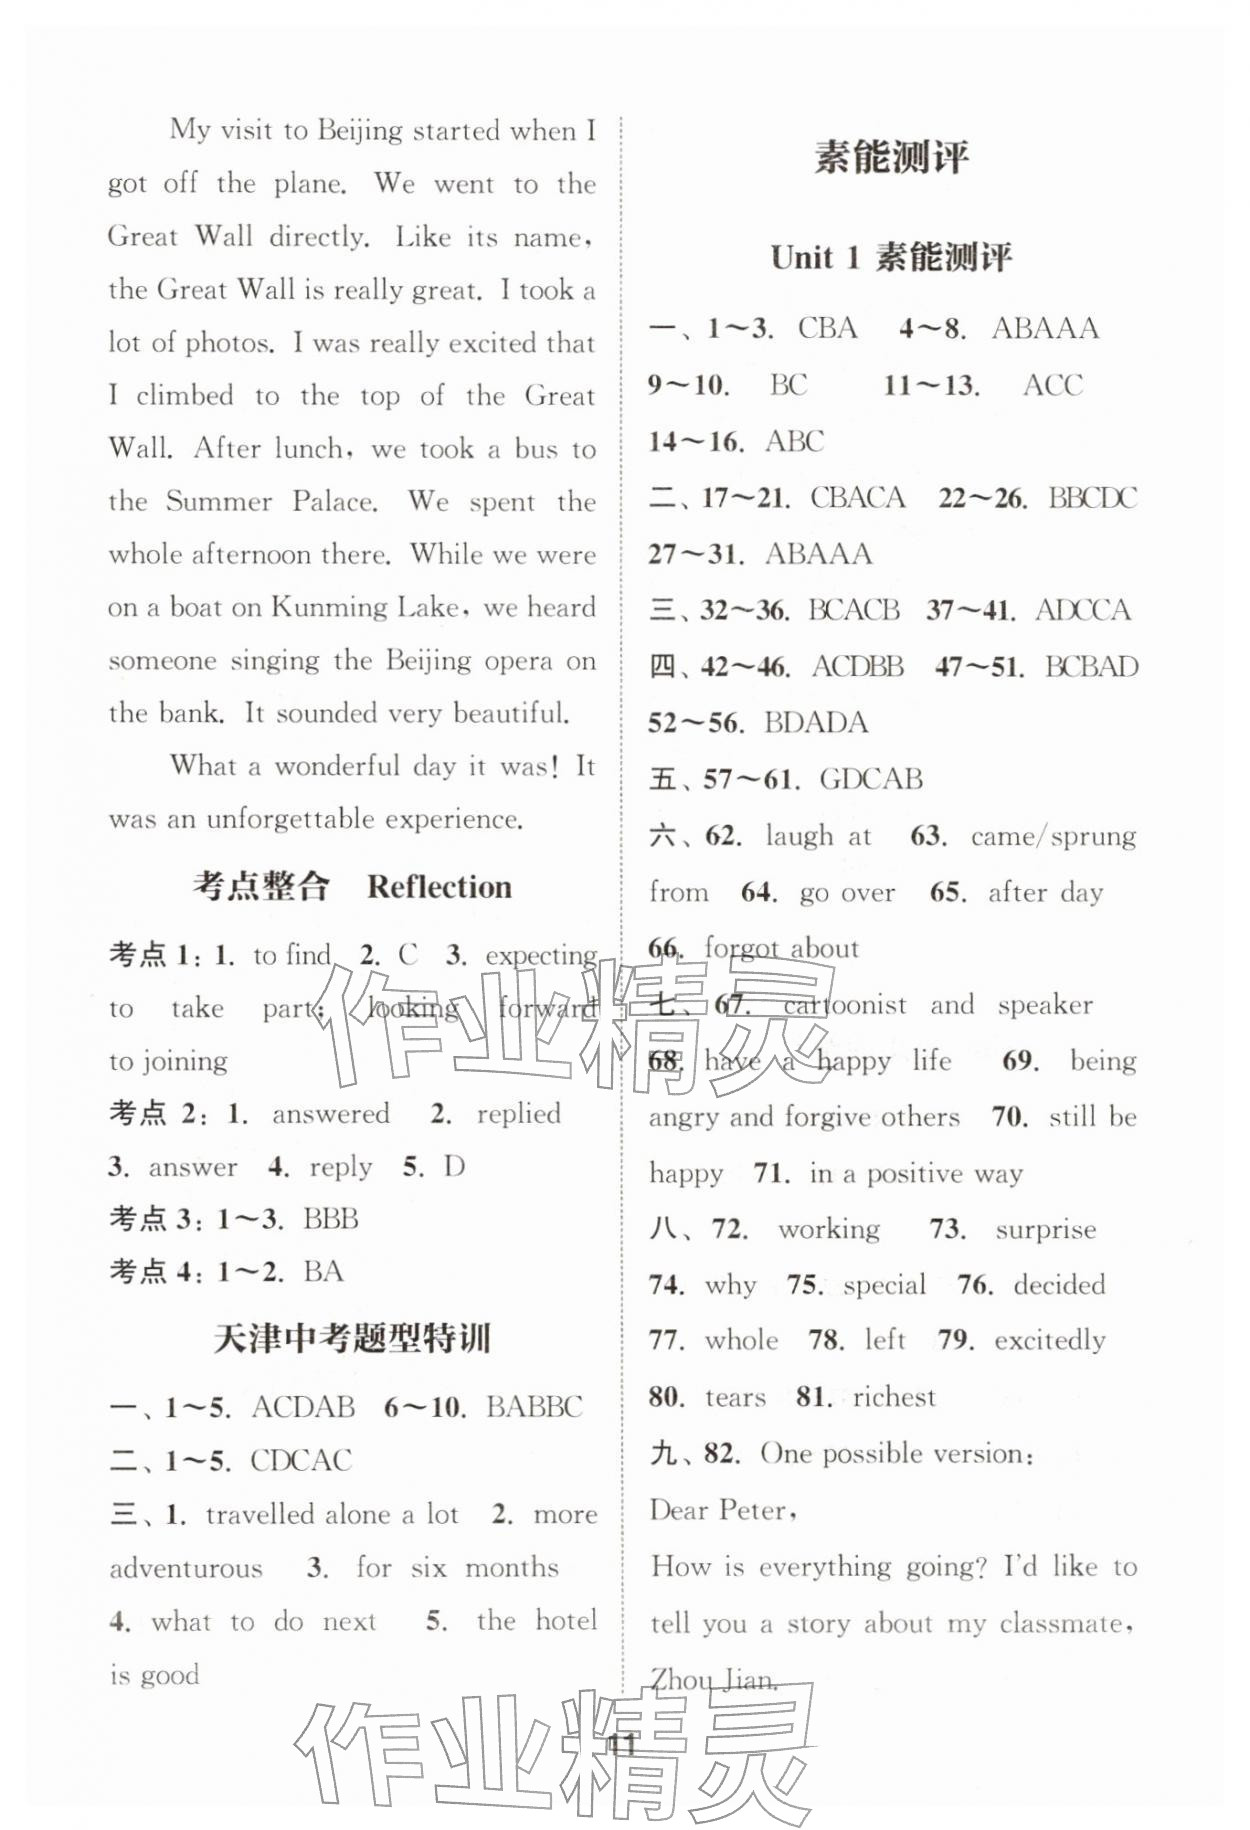 My visit to Beijing started when I
got off the plane. We went to the
Great Wall directly. Like its name,
the Great Wall is really great. I took a
lot of photos. I was really excited that
I climbed to the top of the Great
Wall. After lunch, we took a bus to
the Summer Palace. We spent the
whole afternoon there. While we were
on a boat on Kunming Lake, we heard
someone singing the Beijing opera on
the bank. It sounded very beautiful.
What a wonderful day it was! It
was an unforgettable experience.
考点整合 Reflection
考点 1: 1. to find 2. C 3. expecting
to take part; looking forward
to joining
考点 2: 1. answered 2. replied
3. answer 4. reply 5. D
考点 3: 1～3. BBB
考点 4: 1～2. BA
天津中考题型特训
一、1～5. ACDAB 6～10. BABBC
二、1～5. CDCAC
三、1. travelled alone a lot 2. more
adventurous 3. for six months
4. what to do next 5. the hotel
is good
素能测评
Unit 1 素能测评
一、1～3. CBA 4～8. ABAAA
9～10. BC 11～13. ACC
14～16. ABC
二、17～21. CBACA 22～26. BBCDC
27～31. ABAAA
三、32～36. BCACB 37～41. ADCCA
四、42～46. ACDBB 47～51. BCBAD
52～56. BDADA
五、57～61. GDCAB
六、62. laugh at 63. came/sprung
from 64. go over 65. after day
66. forgot about
七、67. cartoonist and speaker
68. have a happy life 69. being
angry and forgive others 70. still be
happy 71. in a positive way
八、72. working 73. surprise
74. why 75. special 76. decided
77. whole 78. left 79. excitedly
80. tears 81. richest
九、82. One possible version:
Dear Peter,
How is everything going? I'd like to
tell you a story about my classmate,
Zhou Jian.
作业精灵
作业精灵
11